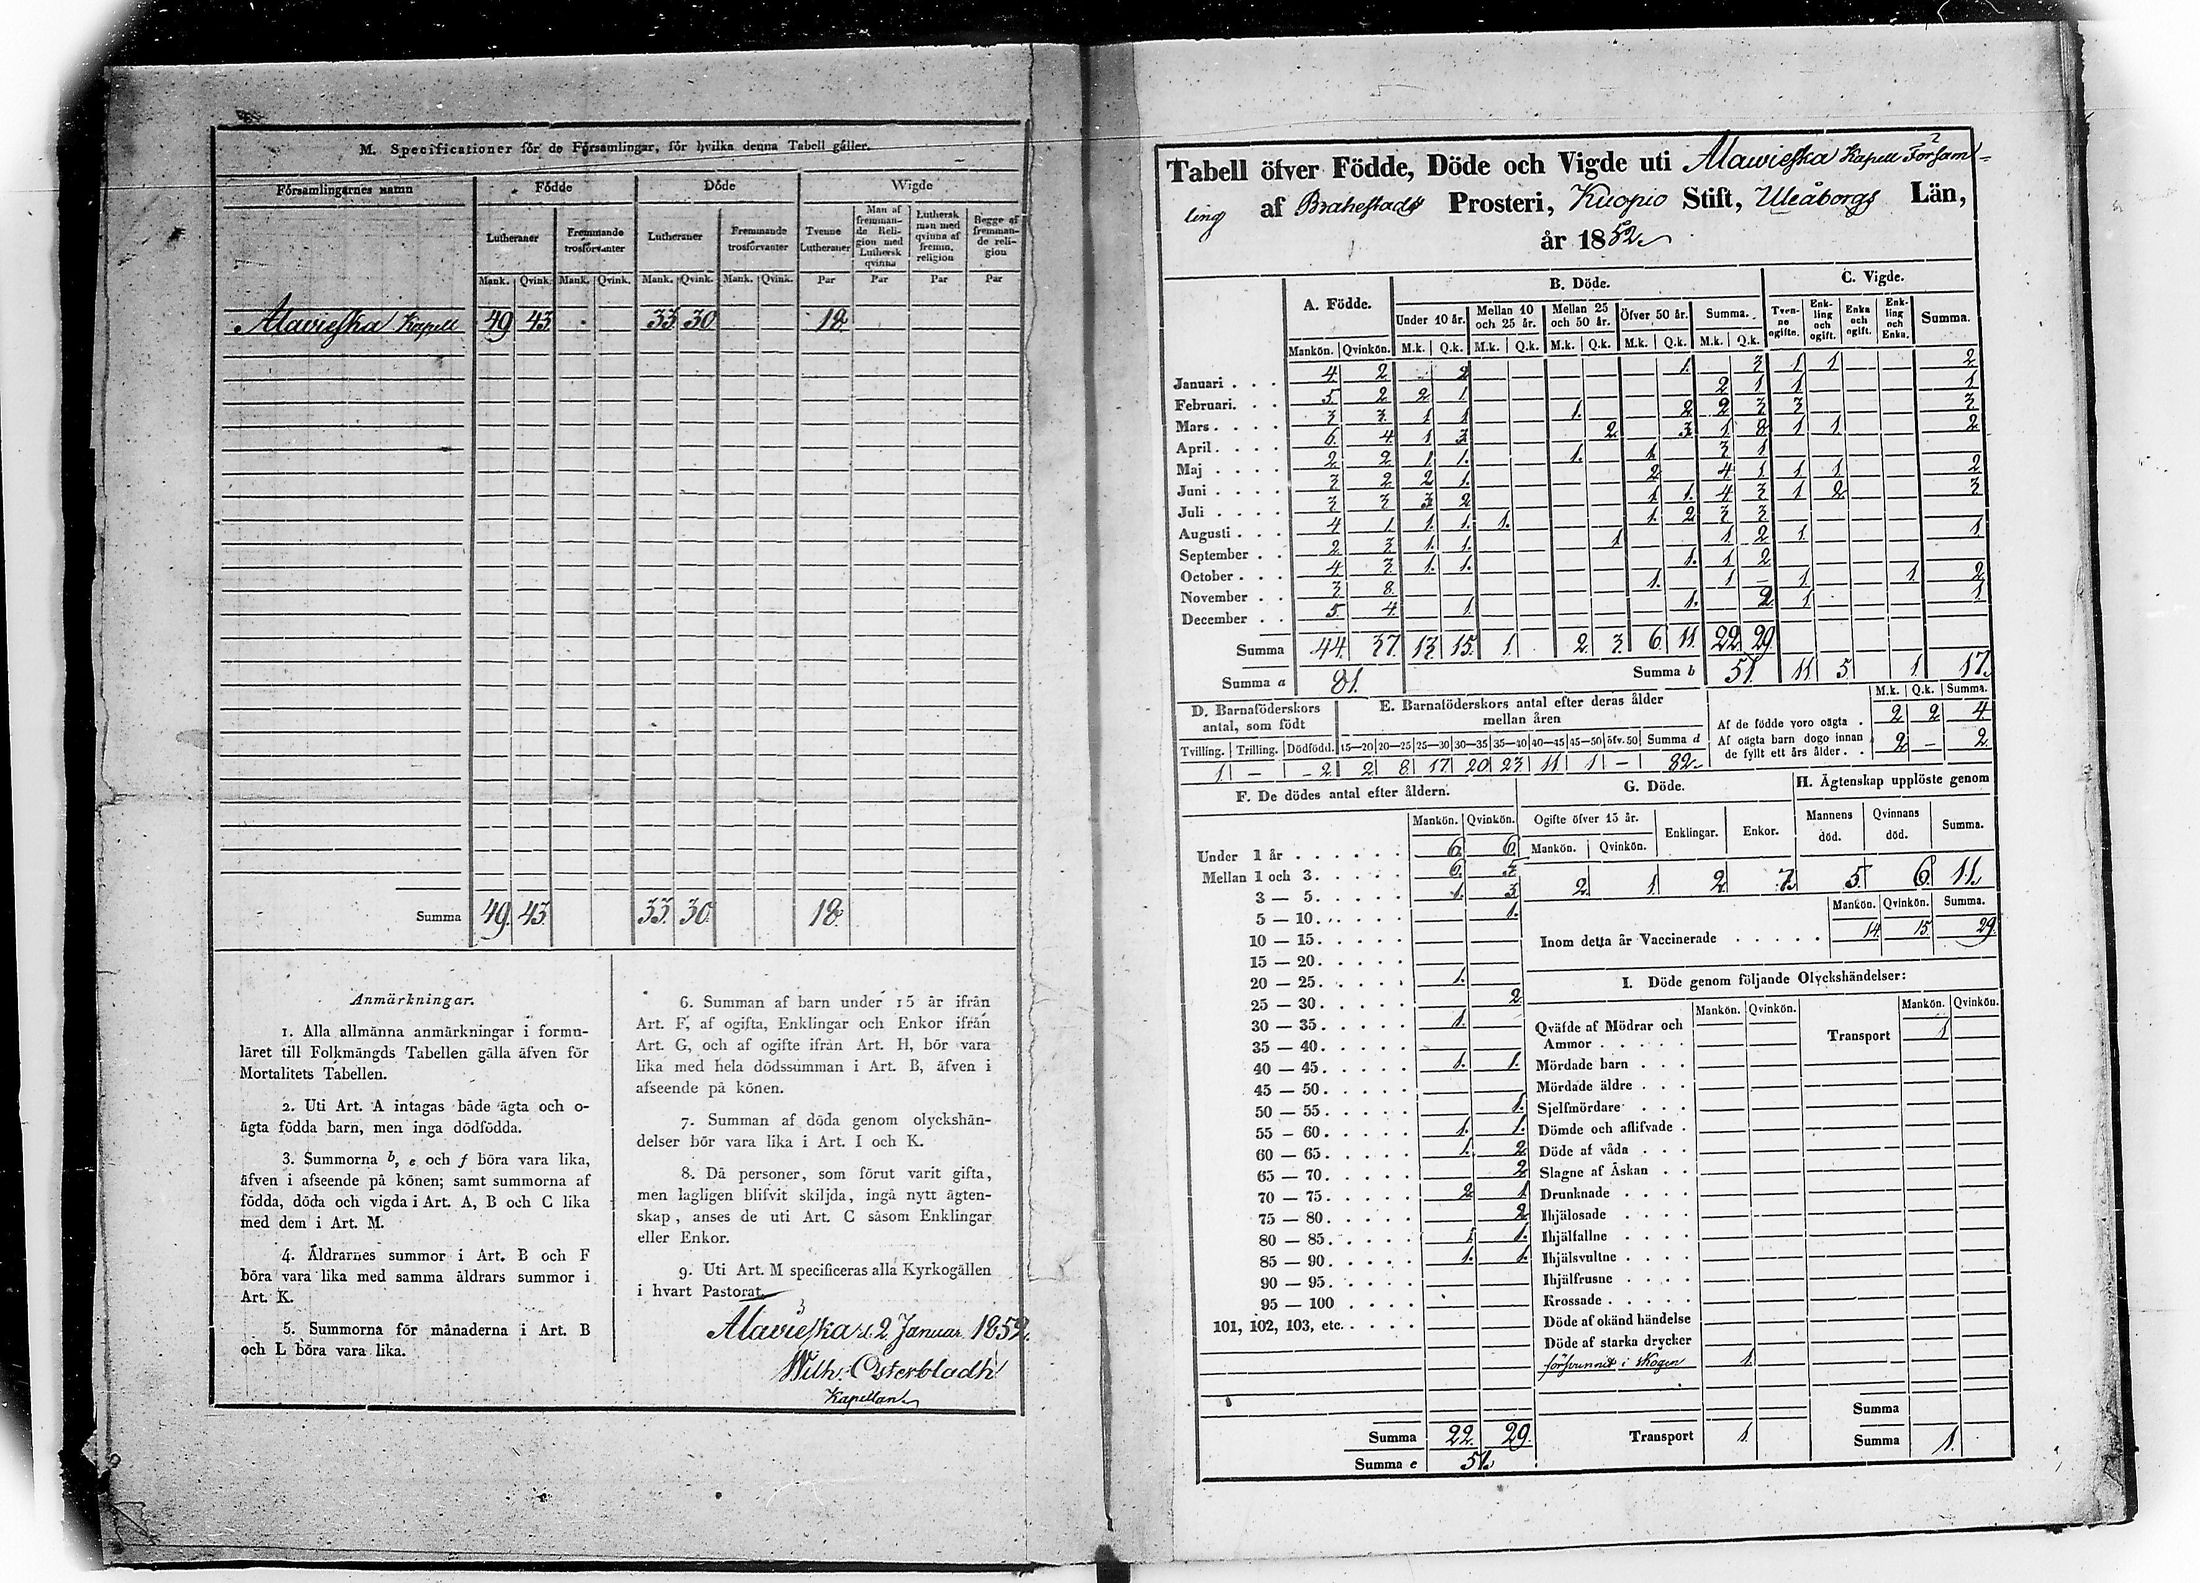 M. Specificationer för de Församlingar, för hvilka denna Tabell gäller.
Församlingarnes namn Födde Döde Wigde
Lutheraner Fremmande trosförvanter Lutheraner Fremmande trosförvanter Tvenne Lutheraner Man af fremmande Religion med Luthersk qvinna Luthersk man med qvinna af fremm. religion Begge af fremmande religion
Mank. Qvink. Mank. Qvink. Mank. Qvink. Mank. Qvink. Par Par Par Par
Alavieska Kapell 49 43 33 30 18
Summa 49. 43. 33. 30. 18.
Anmärkningar.
1. Alla allmänna anmärkningar i formu-
läret till Folkmängds Tabellen gälla äfven för
Mortalitets Tabellen.
2. Uti Art. A intagas både ägta och o-
ägta födda barn, men inga dödfödda.
3. Summorna b, e och f böra vara lika,
äfven i afseende på könen; samt summorna af
födda, döda och vigda i Art. A, B och C lika
med dem i Art. M.
4. Åldrarnes summor i Art. B och F
böra vara lika med samma åldrars summor i
Art. K.
5. Summorna för månaderna i Art. B
och L böra vara lika.
6. Summan af barn under 15 år ifrån
Art. F, af ogifta, Enklingar och Enkor ifrån
Art. G, och af ogifte ifrån Art. H, bör vara
lika med hela dödssumman i Art. B, äfven i
afseende på könen.
7. Summan af döda genom olyckshän-
delser bör vara lika i Art. I och K.
8. Då personer, som förut varit gifta,
men lagligen blifvit skiljda, ingå nytt ägten-
skap, anses de uti Art. C såsom Enklingar
eller Enkor.
9. Uti Art. M specificeras alla Kyrkogällen
i hvart Pastorat.
Alavieska d. 2 Januar. 1852.
Wilh. Österbladh
Kapellan
Tabell öfver Födde, Döde och Vigde uti Alavieska Kapell Församl-
ling af Brahestads Prosteri, Kuopio Stift, Uleåborgs Län,
år 1852
A. Födde. B. Döde. C. Vigde.
Under 10 år. Mellan 10 och 25 år. Mellan 25 och 50 år. Öfver 50 år. Summa. Tvenne ogifte. Enkling och ogift. Enka och ogift. Enkling och Enka. Summa.
Mankön. Qvinkön. M.k. Q.k. M.k. Q.k. M.k. Q.k. M.k. Q.k. M.k. Q.k.
Januari 4 2 2 1 3 1 1 2
Februari 5 2 2 1 2 1 1 1
Mars 3 3 1 1 1 2 2 3 3 3
April 6 4 1 3 2 3 1 8 1 1 2
Maj 2 2 1 1 1 1 3 1
Juni 3 2 2 1 2 4 1 1 1 2
Juli 3 3 3 2 1 1 4 3 1 2 3
Augusti 4 1 1 1 1 1 2 3 3
September 2 3 1 1 1 1 2 1 1
October 4 3 1 1 1 1 2
November 3 8 1 1 - 1 1 2
December 5 4 1 1 2 1 1
Summa 44 37 13 15 1 2 3 6 11 22 29
Summa a 81. Summa b 51. 11 5 1 17
D. Barnaföderskors antal, som födt
E. Barnaföderskors antal efter deras ålder mellan åren
Tvilling. Trilling. Dödfödd. 15—20 20—25 25—30 30—35 35—40 40—45 45—50 öfv. 50 Summa d
1 - 2 2 8 17 20 23 11 1 - 82
M.k. Q.k. Summa.
Af de födde voro oägta 2 2 4
Af oägta barn dogo innan de fyllt ett års ålder 2 - 2
F. De dödes antal efter åldern. G. Döde. H. Ägtenskap upplöste genom
Mankön. Qvinkön. Ogifte öfver 15 år. Enklingar. Enkor. Mannens död. Qvinnans död. Summa.
Mankön. Qvinkön.
2 1 2 7 5 6 11
Mankön. Qvinkön. Summa.
Inom detta år Vaccinerade 14 15 29
Under 1 år 6 6
Mellan 1 och 3 6 5
3 — 5 1 3
5 — 10 1
10 — 15
15 — 20
20 — 25 1
25 — 30 2
30 — 35 1
35 — 40
40 — 45 1 1
45 — 50
50 — 55 1
55 — 60 1 1
60 — 65 1 2
65 — 70 2
70 — 75 2 1
75 — 80 2
80 — 85 1 1
85 — 90 1 1
90 — 95
95 — 100
101, 102, 103, etc.
Summa 22 29
Summa e 51.
I. Döde genom följande Olyckshändelser:
Mankön. Qvinkön. Mankön. Qvinkön.
Qväfde af Mödrar och Ammor Transport 1
Mördade barn
Mördade äldre
Sjelfmördare
Dömde och aflifvade
Döde af våda
Slagne af Åskan
Drunknade
Ihjälosade
Ihjälfallne
Ihjälsvultne
Ihjälfrusne
Krossade
Döde af okänd händelse
Döde af starka drycker
försvunnit i skogen 1
Summa
Transport 1. Summa 1.